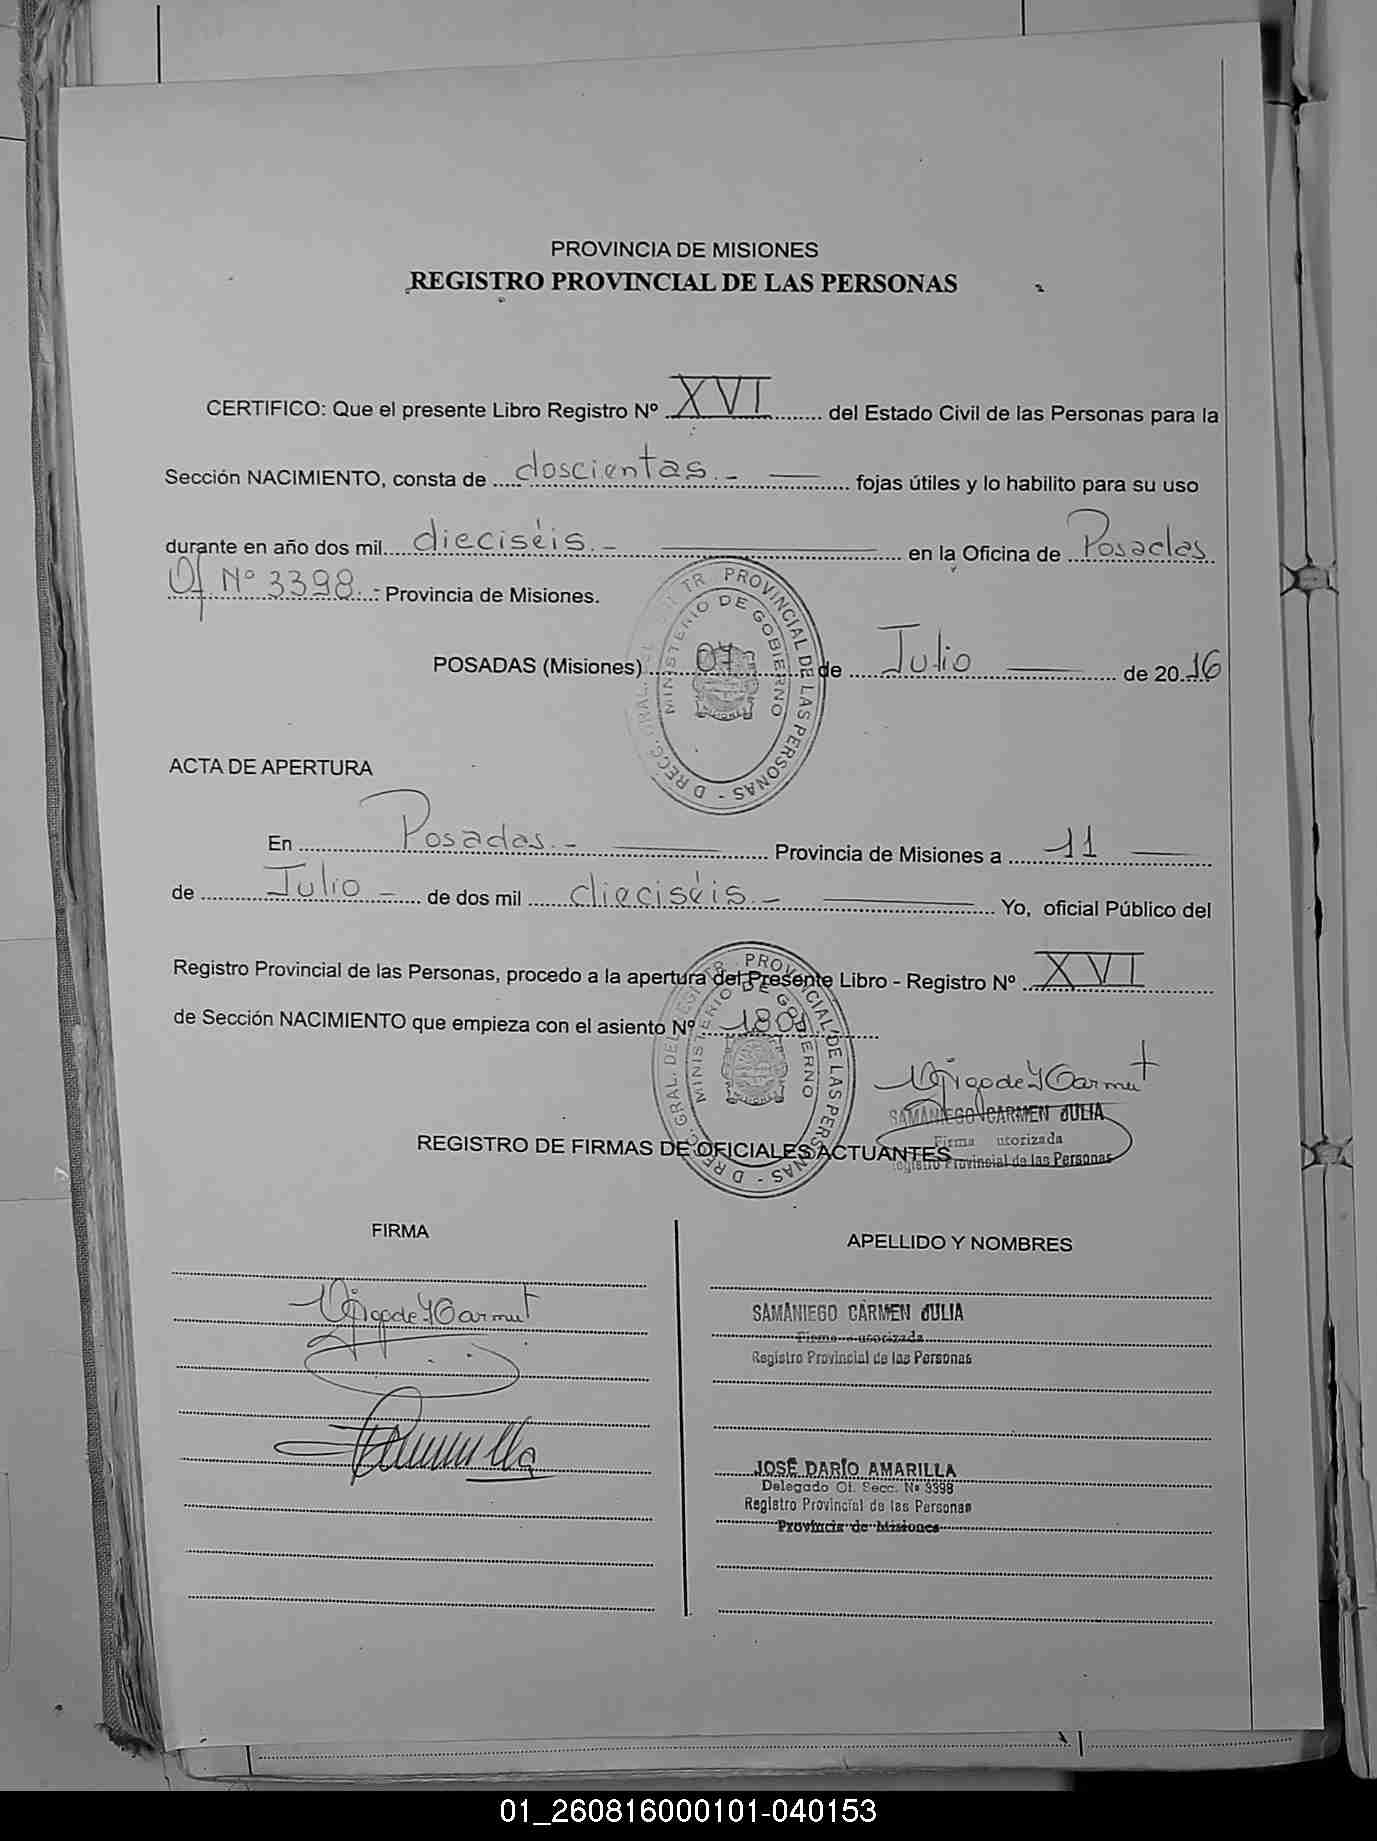 PROVINCIA DE MISIONES
REGISTRO PROVINCIAL DE LAS PERSONAS
CERTIFICO: Que el presente Libro Registro Nº XVI del Estado Civil de las Personas para la
Sección NACIMIENTO, consta de doscientas.- fojas útiles y lo habilito para su uso
durante en año dos mil dieciséis.- en la Oficina de Posadas
Of Nº 3398.- Provincia de Misiones.
POSADAS (Misiones) 07 de Julio de 2016
PROVINCIAL DE LAS PERSONAS
MINISTERIO DE GOBIERNO
ACTA DE APERTURA
En Posadas.- Provincia de Misiones a 11
de Julio - de dos mil dieciséis.- Yo, oficial Público del
Registro Provincial de las Personas, procedo a la apertura del Presente Libro - Registro Nº XVI
de Sección NACIMIENTO que empieza con el asiento Nº 1801
SAMANIEGO CARMEN JULIA
Firma utorizada
egistro Provincial de las Personas
REGISTRO DE FIRMAS DE OFICIALES ACTUANTES
FIRMA
APELLIDO Y NOMBRES
SAMANIEGO CARMEN JULIA
Firma autorizada
Registro Provincial de las Personas
JOSÉ DARÍO AMARILLA
Delegado Of. Secc. Nº 3398
Registro Provincial de las Personas
Provincia de Misiones
01_260816000101-040153